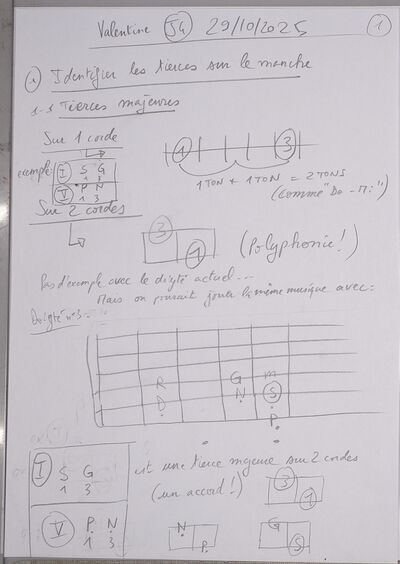 Valentine J4 29/10/2025 1
1) Identifier les tierces sur le manche
1-1 Tierces majeures
Sur 1 corde
1 3
exemple: I S G
1 3
V P N
1 3
1 TON + 1 TON = 2 TONS
(comme "Do - Mi")
Sur 2 cordes
3
1
(Polyphonie!)
Pas d'exemple avec le doigté actuel...
Mais on pourrait jouer la même musique avec:
Doigté n°3:
R G m
D N S
P
I S G
1 3
est une tierce majeure sur 2 cordes
(un accord!)
3
1
V P N
1 3
N
P
G
S